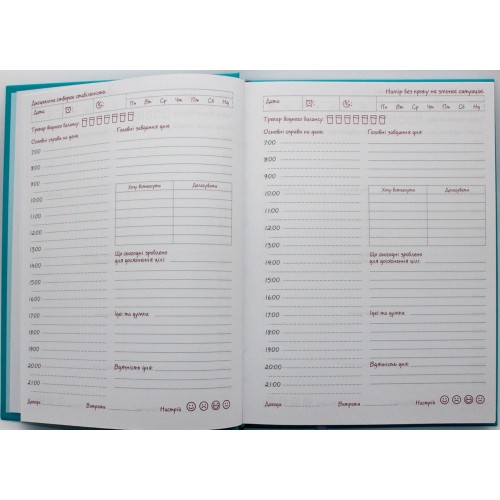 Дисципліна створює стабільність
Дата:
Пн Вт Ср Чт Пт Сб Нд
Трекер водного балансу:
Основні справи на день:
Головні завдання дня:
7:00
8:00
9:00
10:00
11:00
12:00
13:00
14:00
15:00
16:00
17:00
18:00
19:00
20:00
21:00
Хочу встигнути
Делегувати
Що сьогодні зроблено
для досягнення цілі
Ідеї та думки
Вдячність дня:
Доходи
Витрати
Настрій
Намір без прояву не змінює ситуацію
Дата:
Пн Вт Ср Чт Пт Сб Нд
Трекер водного балансу:
Основні справи на день:
Головні завдання дня:
7:00
8:00
9:00
10:00
11:00
12:00
13:00
14:00
15:00
16:00
17:00
18:00
19:00
20:00
21:00
Хочу встигнути
Делегувати
Що сьогодні зроблено
для досягнення цілі
Ідеї та думки
Вдячність дня:
Доходи
Витрати
Настрій